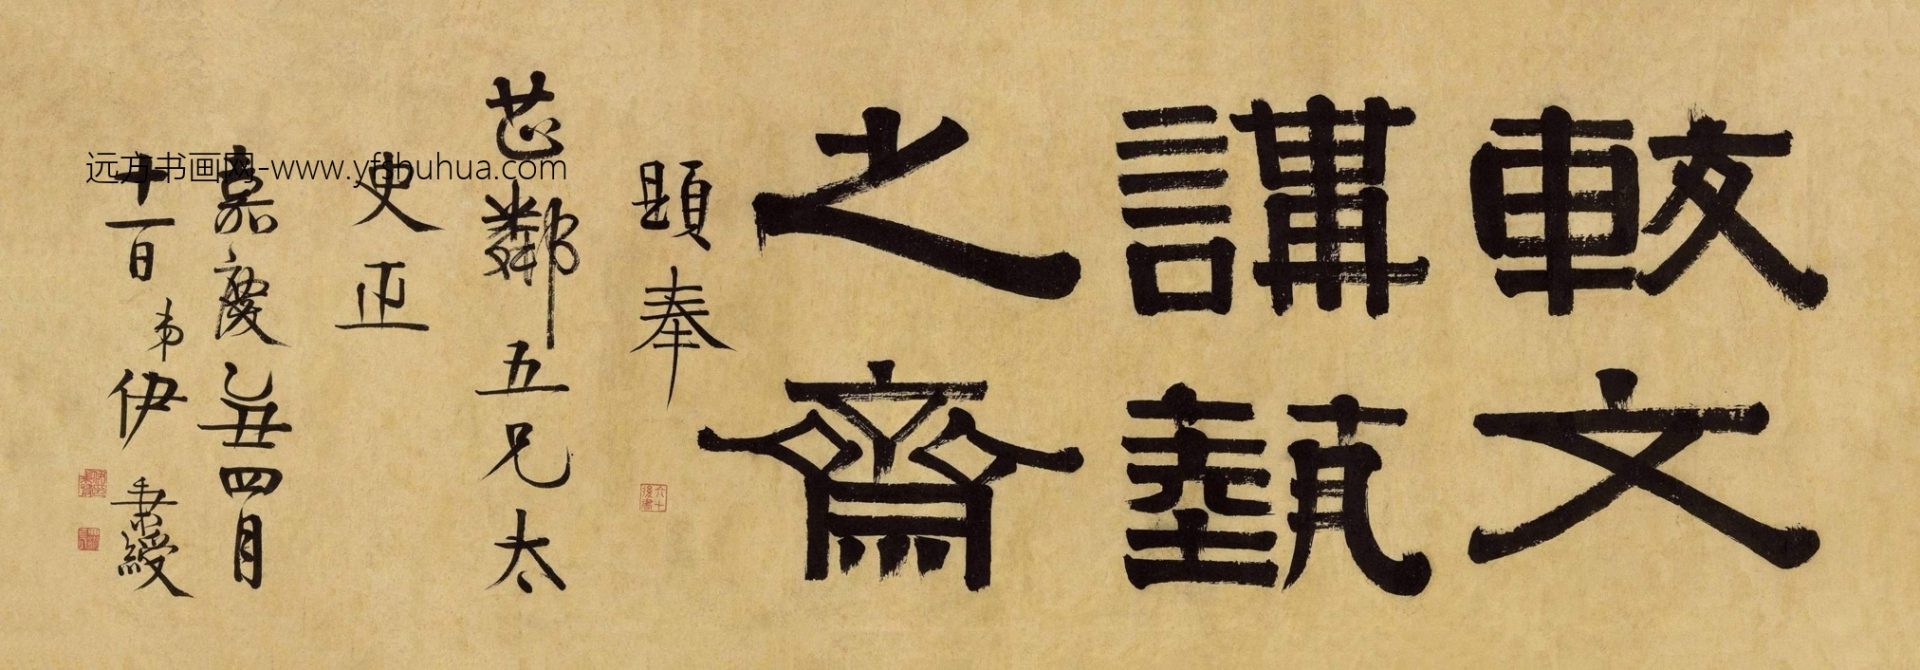 較文
講埶
之齋
題奉
芷鄰五兄太
史正
嘉慶乙丑四月
十一日弟伊
秉綬
远方书画网-www.yfshuhua.com